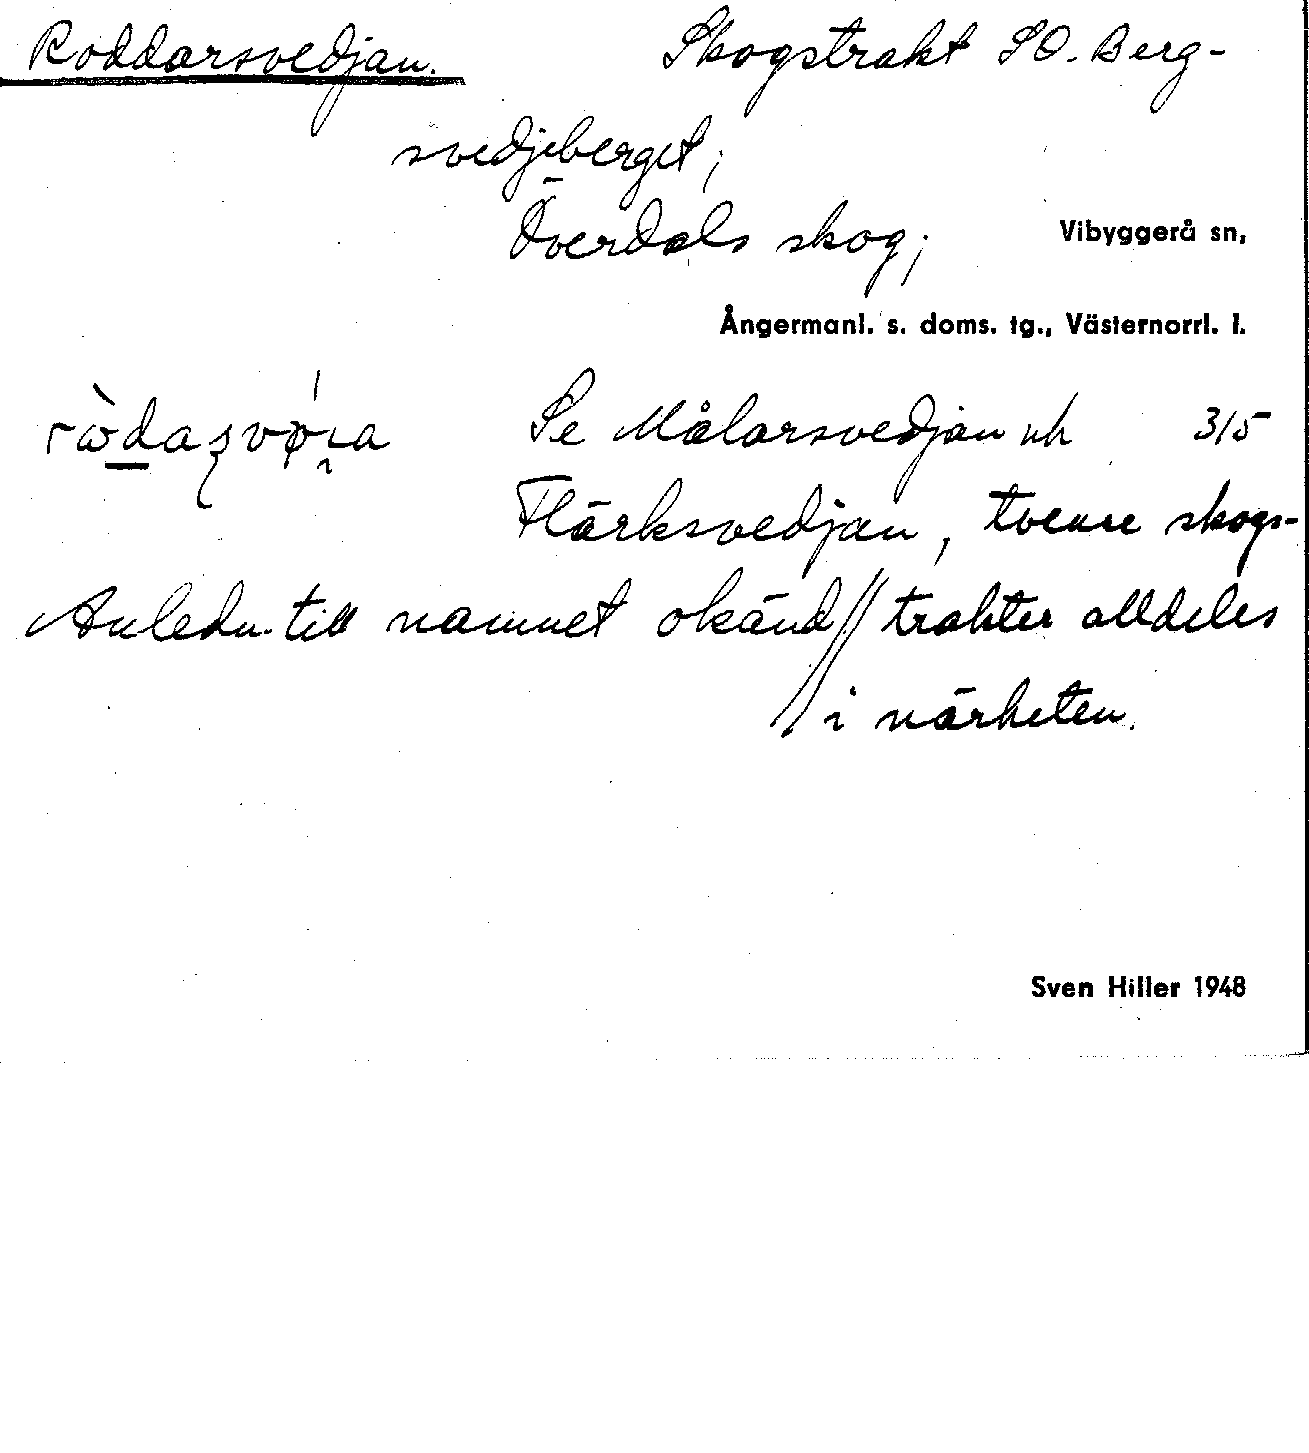 Roddarsvedjan. Skogstrakt SO. Berg-
svedjeberget;
Överdals skog; Vibyggerå sn,
Ångermanl. s. doms. tg., Västernorrl. l.
Se Målarsvedjan och 315
Flärksvedjan, tvenne skogs-
Anledn. till namnet okänd // trakter alldeles
i närheten.
Sven Hiller 1948